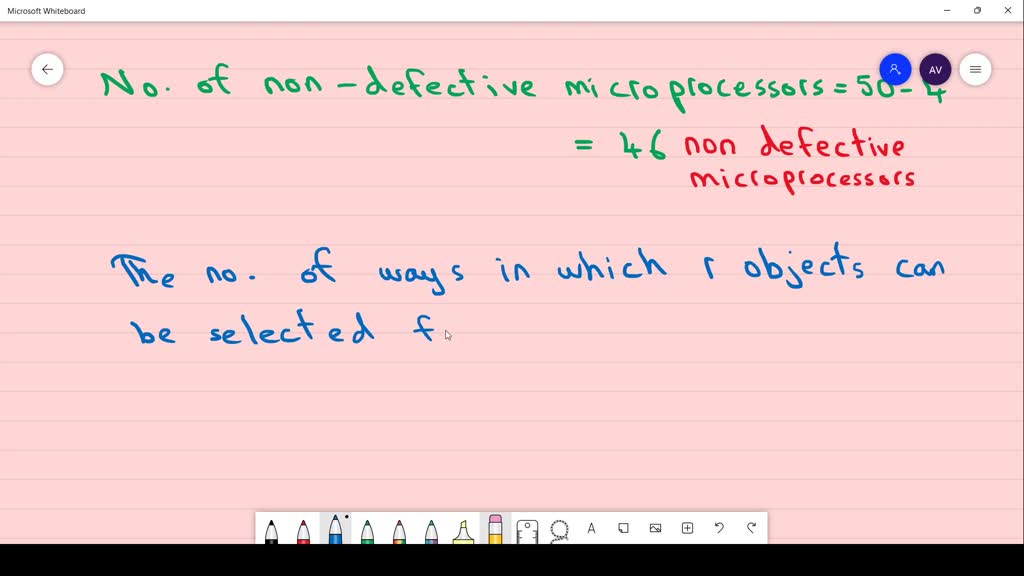 Microsoft Whiteboard
AV
No. of non-defective microprocessors = 50-4
= 46 non defective
microprocessors
The no. of ways in which r objects can
be selected f
A